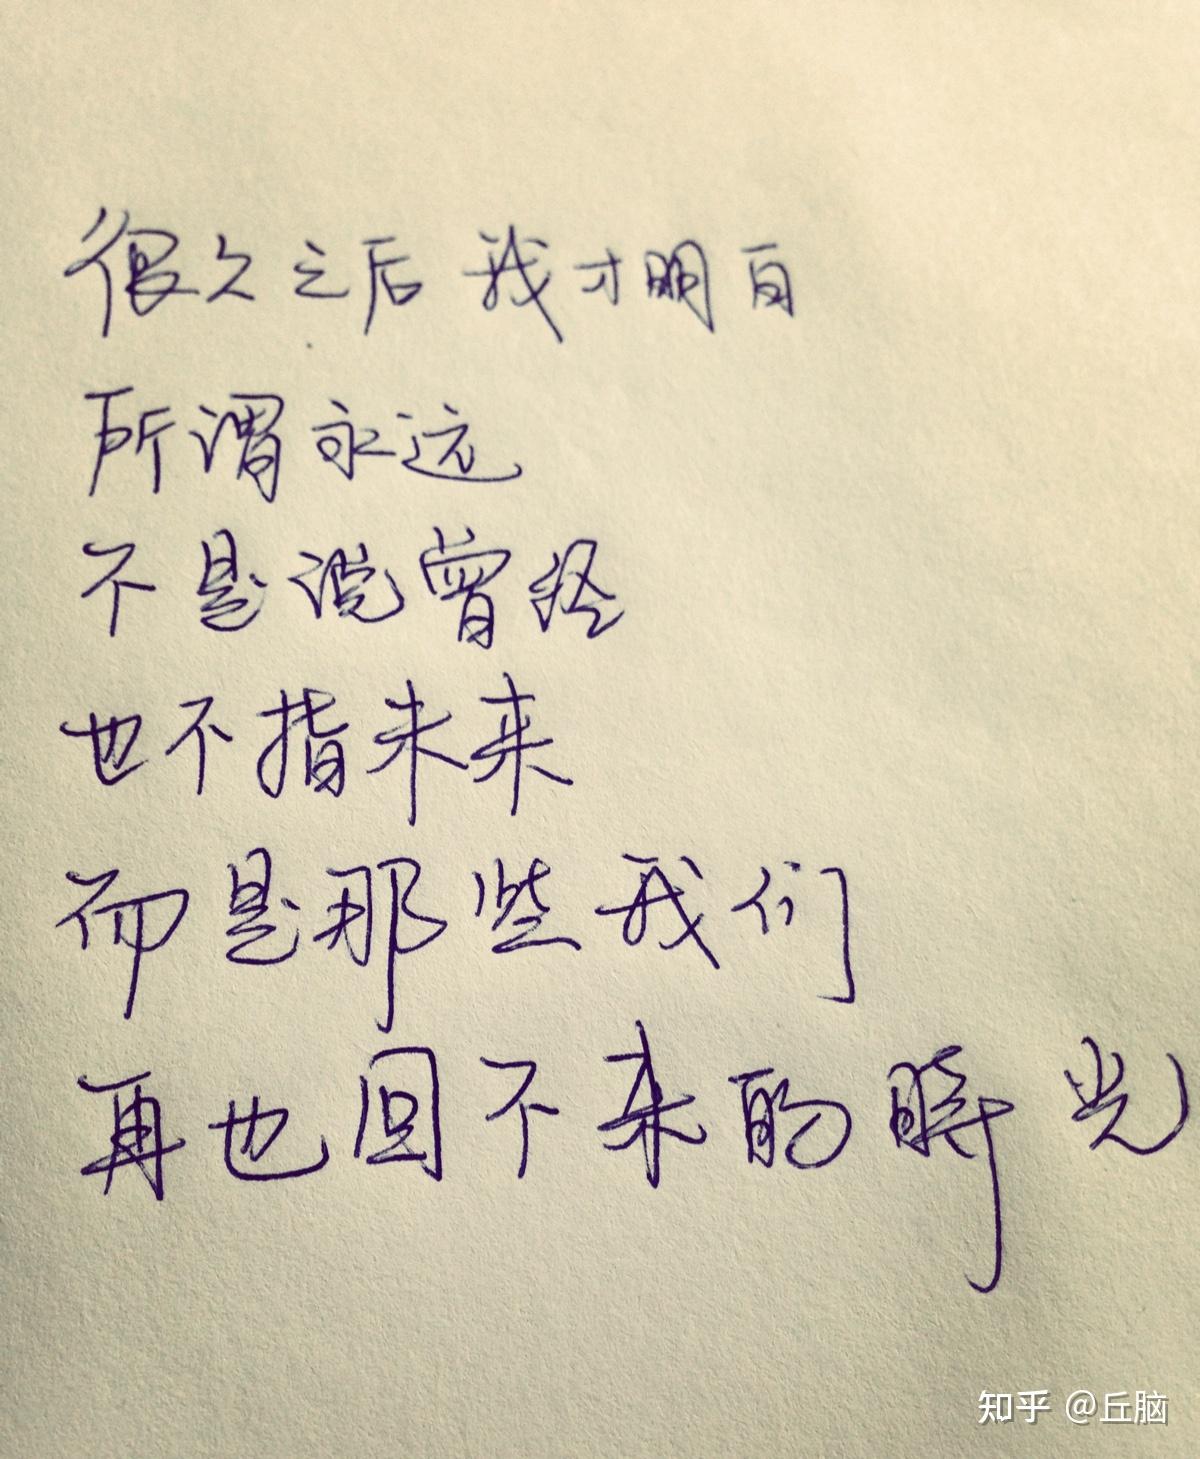 很久之后 我才明白
所谓永远
不是说曾经
也不指未来
而是那些我们
再也回不来的時光
知乎 @丘脑